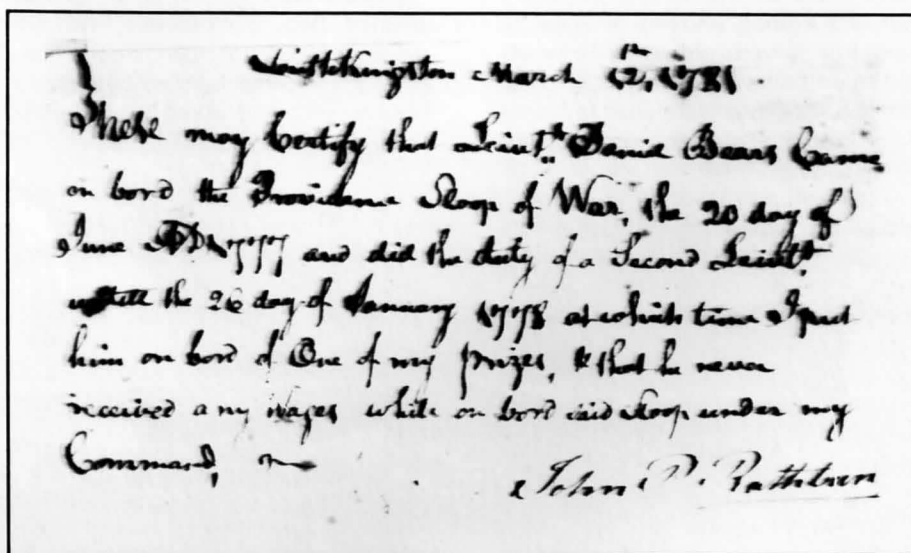 March 12th, 1781
These may Certify that Leint.. Daniel Bears Came
on bord the Providence Sloop of War, the 20 day of
June AD 1777 and did the duty of a Second Leint.
untill the 26 day of January 1778 at which time I put
him on bord of One of my prizes, & that he never
received any wages while on bord said Sloop under my
Command,
John P. Rathbun